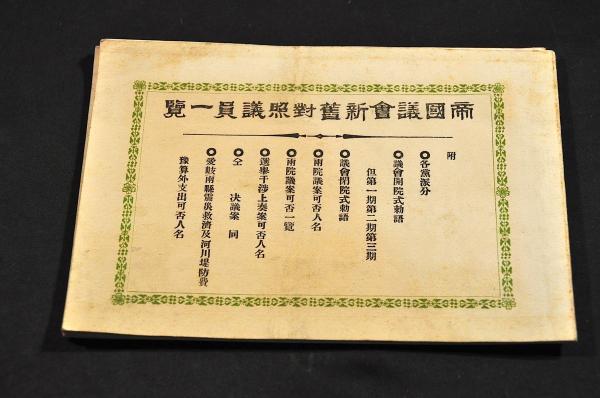 帝國議會新舊對照議員一覧
附
◎各黨派分
◎議會開院式勅語
但第一期第二期第三期
◎議會閉院式勅語
◎兩院議案可否人名
◎兩院議案可否一覽
◎選擧干渉上奏案可否人名
◎仝 决議案 同
◎愛岐兩縣震災救濟及河川堤防費
豫算外支出可否人名